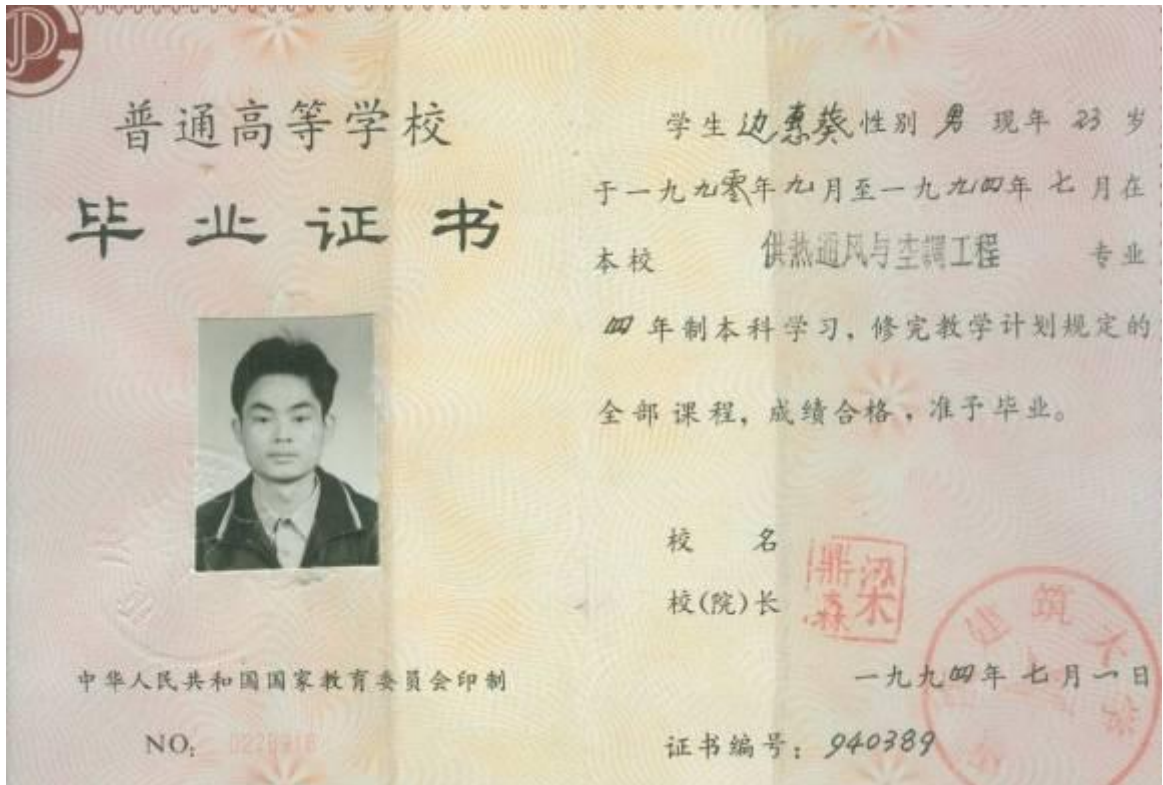 普通高等学校
毕业证书
中华人民共和国国家教育委员会印制
NO:
学生边惠葵性别 男 现年 23 岁
于一九九零年九月至一九九四年 七 月在
本校 供热通风与空調工程 专业
四 年制本科学习，修完教学计划规定的
全部课程，成绩合格，准予毕业。
校 名
校(院)长 梁鼎森
一九九四年 七 月 一 日
证书编号：940389
建筑大学